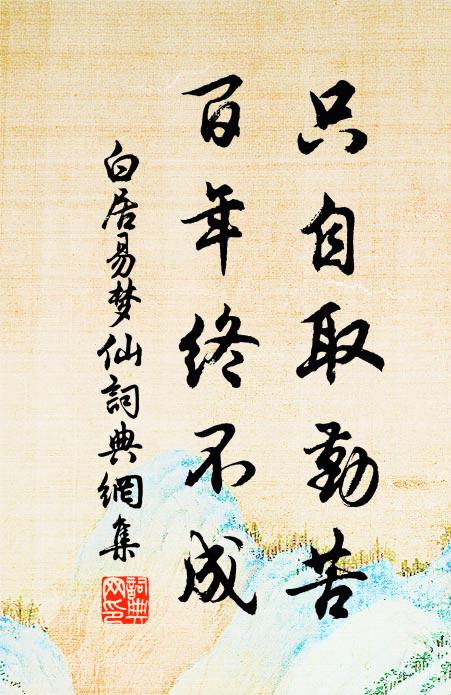 只自取勤苦
百年终不成
白居易梦仙詞典網集
詞典网印